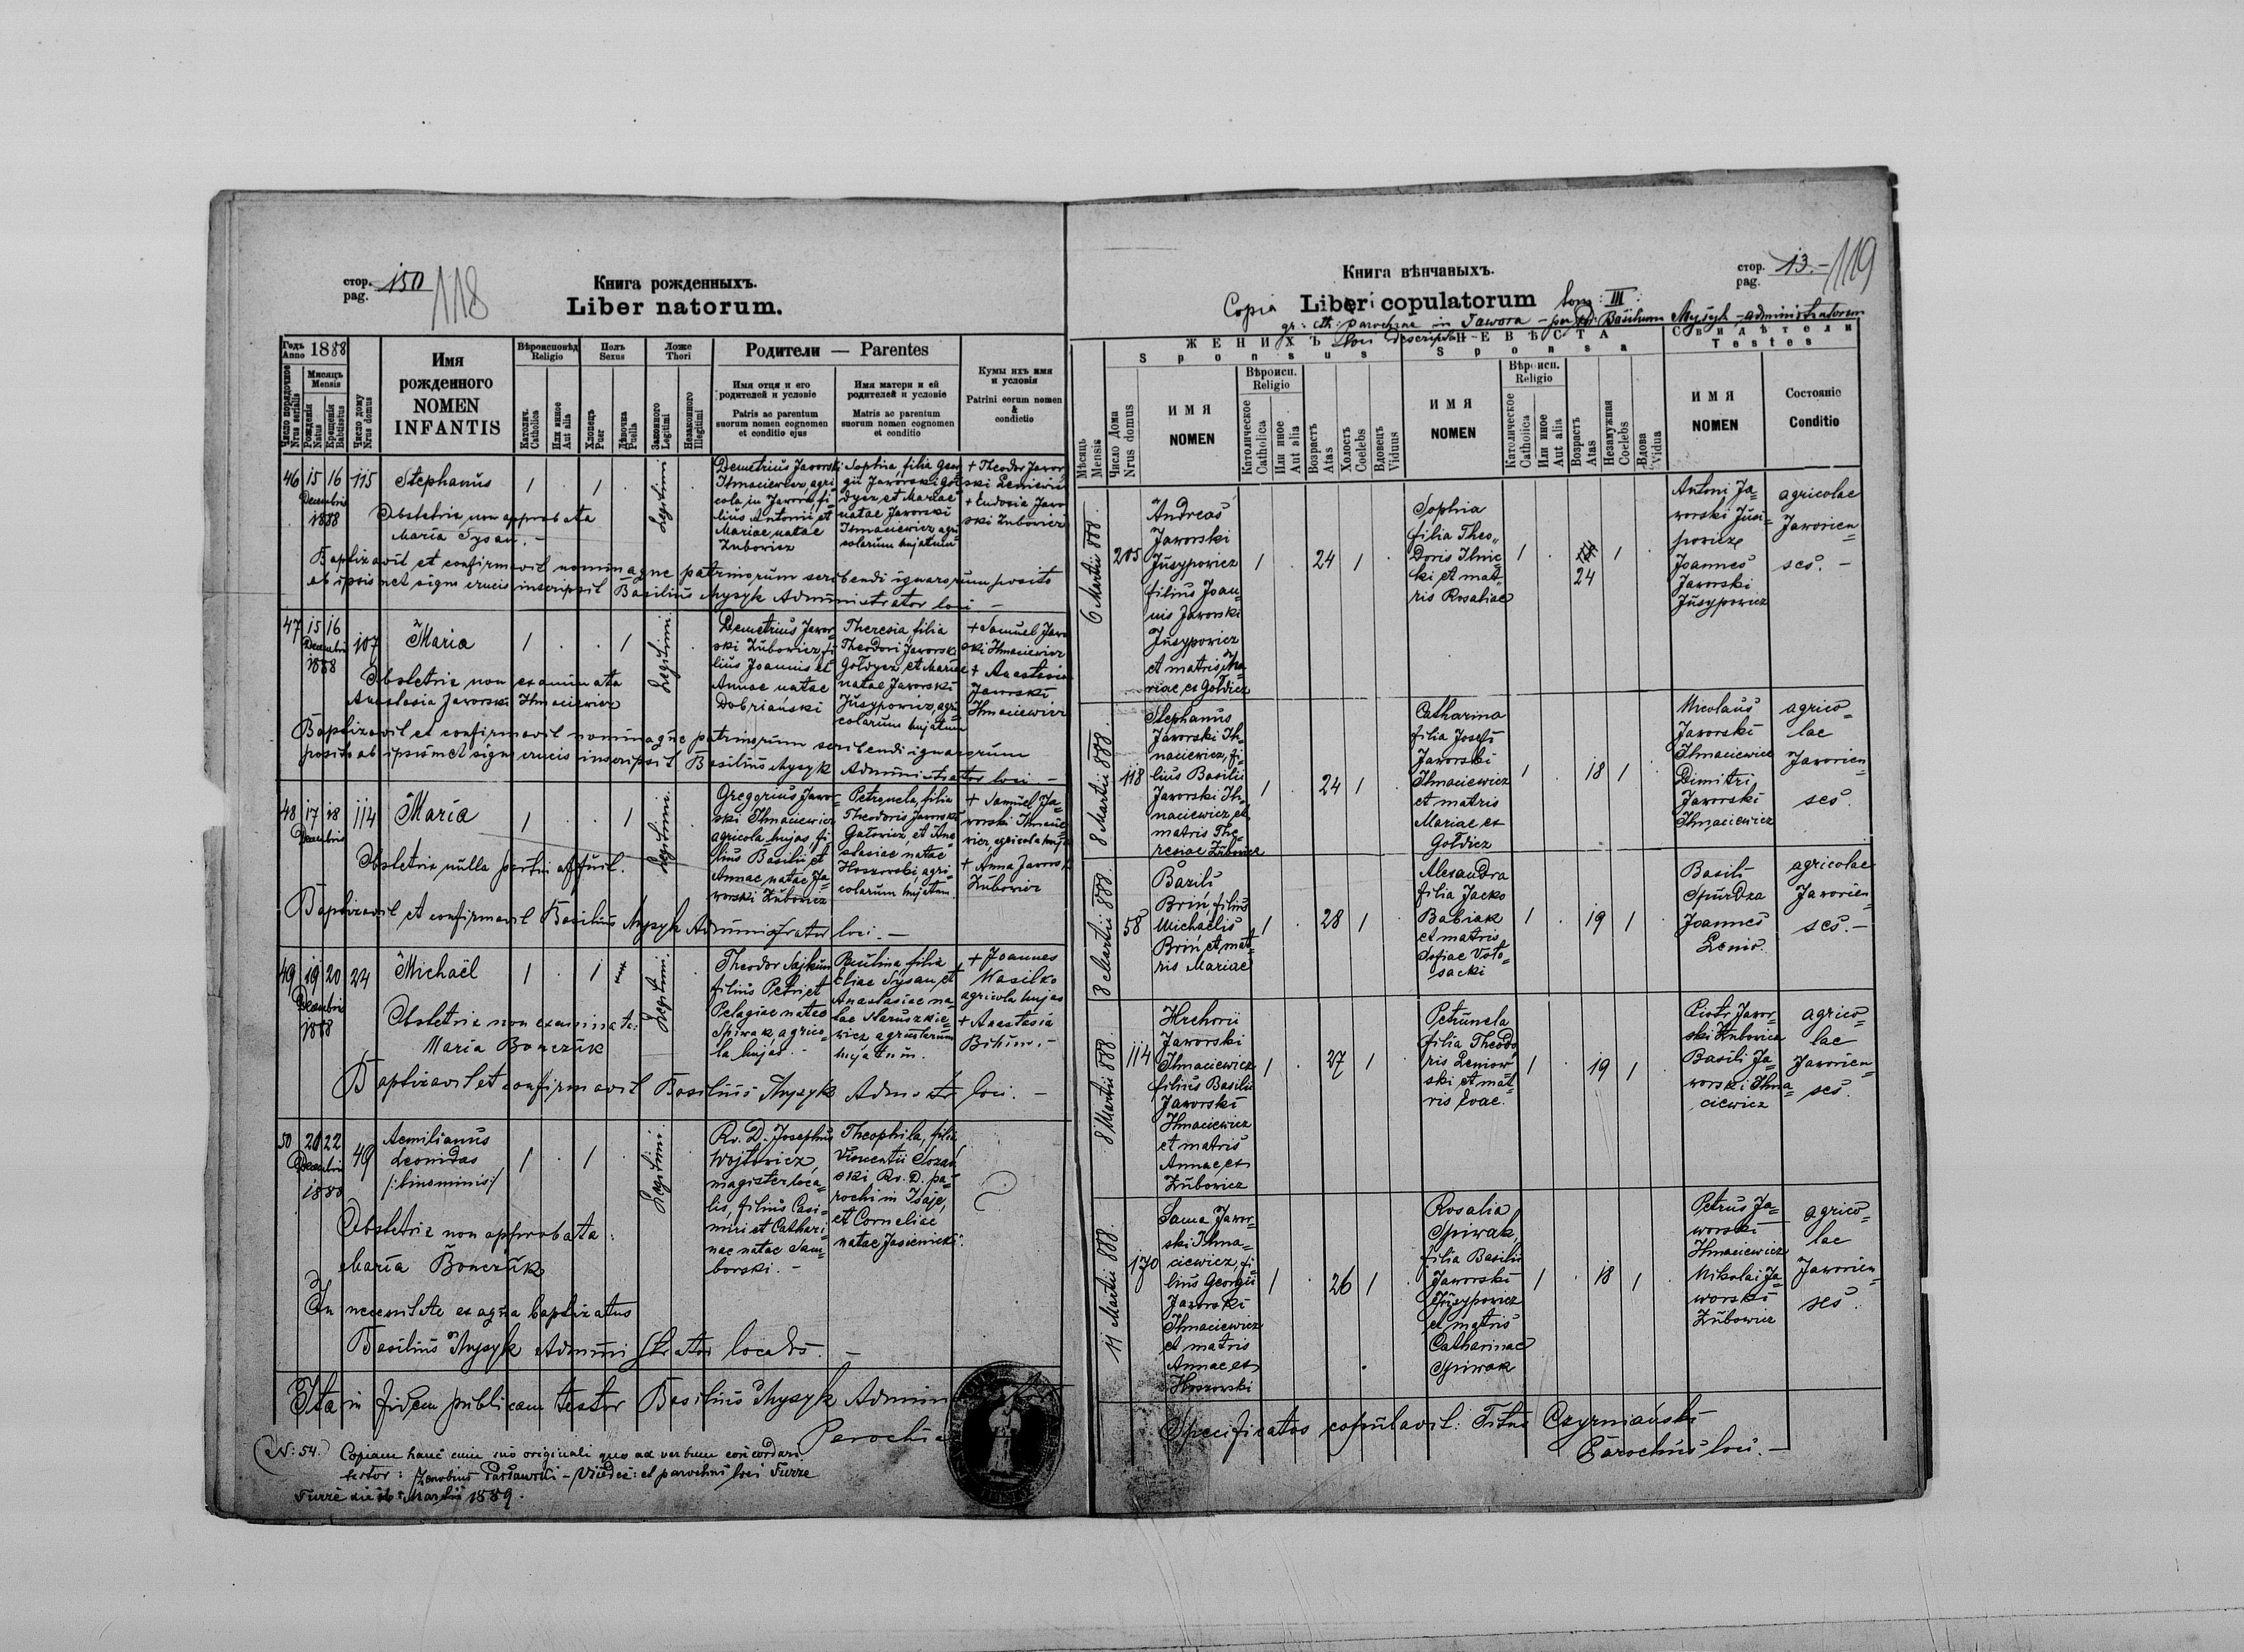 стор.
pag.
150
118
Книга рожденныхъ.
Liber natorum.
Годъ
Anno
1888
Мисяцъ
Mensis
Число порядочное
Nrus serialis
Рождения
Natus
Крещения
Babtisatus
Число дому
Nrus domus
Имя
рожденного
NOMEN
INFANTIS
Вѣроисповѣд
Religio
Католич.
Catholica
Или иное
Aut alia
Полъ
Sexus
Хлопецъ
Puer
Дѣвочка
Puella
Ложе
Thori
Законного
Legitimi
Незаконного
Illegitimi
Родители — Parentes
Имя отця и его
родителей и условіе
Patris ac parentum
suorum nomen cognomen
et conditio ejus
Имя матери и ей
родителей и условіе
Matris ac parentum
suorum nomen cognomen
et conditio
Кумы ихъ имя
и условія
Patrini eorum nomen
&
condictio
46 15 16 115 Stephanus 1 . 1 .
Decembris
1888
Legitimi
Obstetrix non approbata
Maria Sysan. -
Demetrius Jaworski
Ilmaciewicz, agri
cola in Jawora fi-
lius Antonii, et
Mariae natae
Zubowicz
Sophia, filia Geor
gii Jaworski Goł
dycz, et Mariae
natae Jaworski
Ilmaciewicz agri
colarum hujatum
+ Theodor Jawor
ski
+ Eudosia Jawo
ski Zubowicz
Baptizavit et confirmavit nominaque patrinorum scribendi ignarorum posito
ab ipsismet signo crucis inscripsit Basilius Mysyk Administrator loci —
47 15 16 107 Maria 1 . . 1
Decembris
1888
Legitimi
Obstetrix non examinata
Anastasia Jaworski Ilmaciewicz
Demetrius Jawor-
ski Zubowicz, fi
lius Joannis et
Annae natae
Dobriański
Theresia filia
Theodori Jaworski
Gołdycz, et Mariae
natae Jaworski
Jusypowicz, agri
colarum hujatum
+ Samuel Jawo
ski Ilmaciewicz
+ Anastasia
Jaworski
Ilmaciewicz
Baptizavit et confirmavit nominaque patrinorum scribendi ignarorum
posito ab ipsismet signo crucis inscripsit Basilius Mysyk Administrator loci —
48 17 18 114 Maria 1 . . 1
Decembris
Legitimi.
Obstetrix nulla partui affuit.
Gregorius Jawo-
ski Ilmaciewicz
agricola hujas, fi
lius Basilii et
Annae, natae Ja-
worski Zubowicz
Petronela, filia
Theodoris Jaworski
et Ana
stasiae natae
Hoszowski, agri-
colarum hujatum.
+ Samuel Ja-
worski Ilmacie
wicz, agricola hujas
+ Anna Jaworsk
Zubowicz
Baptizavit et confirmavit Basilius Mysyk Administrator loci. —
49 19 20 24 Michaël 1 . 1
Decembris
1888
Legitimi.
Obstetrix non examinata:
Maria Bonczuk
Theodor Sajkun
filius Petri et
Pelagiae natae
Spiwak, agrico-
la hujas. -
Paulina, filia
Eliae Sysan, et
Anastasiae na-
tae
hujatum.
+ Joannes
Wasilko
agricola hujas
+ Anastasia
Baptizavit et confirmavit Basilius Mysyk Adm loci. —
50 21 22 49 Aemilianus
Leonidas
/:binominis:/ 1 . 1 .
Decembris
1888
Legitimi.
Obstetrix non approbata:
Maria Bonczuk
Rv. D. Josephus
Wojtowicz,
magister loca-
lis, filius Casi-
miri et Cathari
nae natae Sam-
borski. -
Theophila, filia
Vincentii Sozań
ski Rv. D. pa-
rochi in Isaje,
et Corneliae
natae Jasienicki.
In necessitate ex aqua baptizatus
Basilius Mysyk Administrator localis. —
Ita in fidem publicam testor Basilius Mysyk Admin
Parochia
(N: 54.) Copiam hanc cum suo originali quo ad verbum concordari
testor: Zenobius - et parochus loci Turze
Turze die Martii 1889.
стор.
pag.
13. -
119
Книга вѣнчаныхъ.
Copia Liberi copulatorum tom: III:
gr: cth: parochiae in Jawora - per Basilium Mysyk - administratorem
loci descripta -
ЖЕНИХЪ
Sponsus
НЕВѢСТА
Sponsa
Свидѣтели
Testes
Мѣсяцъ
Mensis
Число Дома
Nrus domus
ИМЯ
NOMEN
Вѣроисп.
Religio
Католическое
Catholica
Или иное
Aut alia
Возрастъ
Atas
Холостъ
Coelebs
Вдовецъ
Viduus
ИМЯ
NOMEN
Вѣроисп.
Religio
Католическое
Catholica
Или иное
Aut alia
Возрастъ
Atas
Незамужная
Coelebs
Вдова
Vidua
ИМЯ
NOMEN
Состояніе
Conditio
6 Martii 888.
205
Andreas
Jaworski
Jusypowicz
filius Joan-
nis Jaworski
Jusypowicz
et matris Ma-
riae, ex Gołdicz
1 . 24 1 .
Sophia
filia Theo-
doris Ilnic
ki et mat-
ris Rosaliae
1 . 24 1
Antoni Ja-
worski Jusi-
powicz
Joannes
Jaworski
Jusypowicz
agricolae
Jaworien-
ses. -
8 Martii 888.
118
Stephanus
Jaworski Il-
maciewicz, fi-
lius Basilii
Jaworski Il-
maciewicz, et
matris The-
resiae Zubowicz
1 . 24 1 .
Catharina
filia Josefi
Jaworski
Ilmaciewicz
et matris
Mariae ex
Gołdicz
1 . 18 1 .
Nicolaus
Jaworski
Ilmaciewicz
Dimitri
Jaworski
Ilmaciewicz
agrico-
lae
Jaworien-
ses.
8 Martii 888.
58
Bazili
Brin, filius
Michaelis
Brin, et mat-
ris Mariae
1 . 28 1 .
Alexandra
filia Jacko
Babiak
et matris
Sofiae Woło-
sacki
1 . 19 1 .
Basili
Spurdza
Joannes
Lenio.
agricolae
Jaworien-
ses. -
8 Martii 888.
114
Hrehorii
Jaworski
Ilmaciewicz
filius Basilii
Jaworski
Ilmaciewicz
et matris
Annae, ex
Zubowicz
1 . 27 1 .
Petrunela
filia Theodo
ris Leniow-
ski et mat-
ris Evae.
1 . 19 1 .
Piotr Jawor-
ski Zubowicz
Basili Ja-
worski Ilma-
ciewicz
agrico-
lae
Jaworien-
ses.
11 Martii 888.
170
Sama Jawor-
ski Ilma-
ciewicz, fi-
lius Georgii
Jaworski
Ilmaciewicz
et matris
Annae ex
Hoszowski
1 . 26 1 .
Rosalia
Spiwak,
filia Basilii
Jaworski
Jusypowicz
et matris
Catharinae
Spiwak
1 . 18 1 .
Petrus Ja-
worski
Ilmaciewicz
Mikolai Ja-
worski
Zubowicz
agrico-
lae
Jaworien-
ses.
Specificatos copulavit: Titus Czyrniański
Parochus loci. —